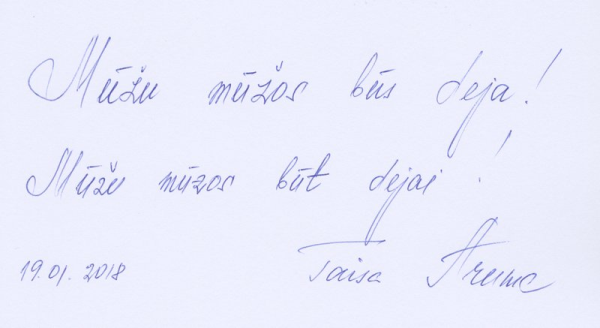 Mūžu mūžos būs deja!
Mūžu mūžos būt dejai!
19.01.2018 Taisa Aruma